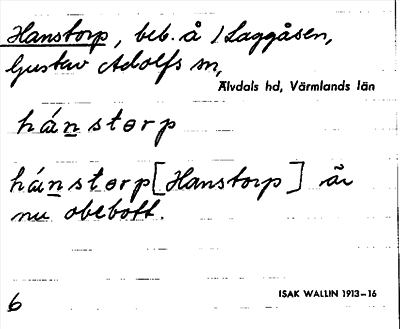 Hanstorp, beb. å /Laggåsen,
Gustav Adolfs sn,
Älvdals hd, Värmlands län
hánstorp
hánstorp [Hanstorp] är
nu obebott.
6
ISAK WALLIN 1913-16